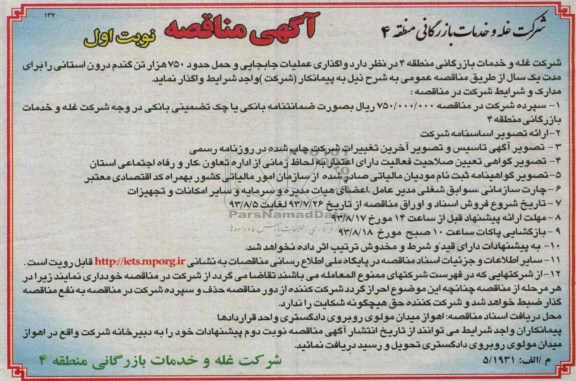 ۱۳۷
شرکت غله و خدمات بازرگانی منطقه ۴
آگهی مناقصه
نوبت اول
شرکت غله و خدمات بازرگانی منطقه ۴ در نظر دارد واگذاری عملیات جابجایی و حمل حدود ۷۵۰ هزار تن گندم درون استانی را برای
مدت یک سال از طریق مناقصه عمومی به شرح ذیل به پیمانکار (شرکت) واجد شرایط واگذار نماید.
مدارک و شرایط شرکت در مناقصه :
۱- سپرده شرکت در مناقصه ۷۵۰/۰۰۰/۰۰۰ ریال بصورت ضمانتنامه بانکی یا چک تضمینی بانکی در وجه شرکت غله و خدمات
بازرگانی منطقه ۴
۲- ارائه تصویر اساسنامه شرکت
۳- تصویر آگهی تاسیس و تصویر آخرین تغییرات شرکت چاپ شده در روزنامه رسمی
۴- تصویر گواهی تعیین صلاحیت فعالیت دارای اعتبار به لحاظ زمانی از اداره تعاون ،کار و رفاه اجتماعی استان
۵- تصویر گواهینامه ثبت نام مودیان مالیاتی صادر شده از سازمان امور مالیاتی کشور بهمراه کد اقتصادی معتبر
۶- چارت سازمانی ،سوابق شغلی مدیر عامل ،اعضای هیات مدیره و سرمایه و سایر امکانات و تجهیزات
۷- تاریخ شروع فروش اسناد و اوراق مناقصه از تاریخ ۹۳/۷/۲۶ لغایت ۹۳/۸/۵
۸- مهلت ارائه پیشنهاد قبل از ساعت ۱۴ مورخ ۹۳/۸/۱۷
۹- بازگشایی پاکات ساعت ۱۰ صبح مورخ ۹۳/۸/۱۸
۱۰- به پیشنهادات دارای قید و شرط و مخدوش ترتیب اثر داده نخواهد شد.
۱۱- سایر اطلاعات و جزئیات اسناد مناقصه در پایگاه ملی اطلاع رسانی مناقصات به نشانی http://iets.mporg.ir قابل رویت است.
۱۲- از شرکتهایی که در فهرست شرکتهای ممنوع المعامله می باشند تقاضا می گردد از شرکت در مناقصه خودداری نمایند زیرا در
هر مرحله از مناقصه چنانچه این موضوع احراز گردد شرکت کننده از دور مناقصه حذف و سپرده شرکت در مناقصه به نفع مناقصه
گذار ضبط خواهد شد و شرکت کننده حق هیچگونه شکایت را ندارد.
محل دریافت اسناد مناقصه: اهواز میدان مولوی روبروی دادگستری واحد قراردادها
پیمانکاران واجد شرایط می توانند از تاریخ انتشار آگهی مناقصه نوبت دوم پیشنهادات خود را به دبیرخانه شرکت واقع در اهواز
میدان مولوی روبروی دادگستری تحویل و رسید دریافت نمائید.
م /الف: ۵/۱۹۳۱
شرکت غله و خدمات بازرگانی منطقه ۴
ParsNamadData